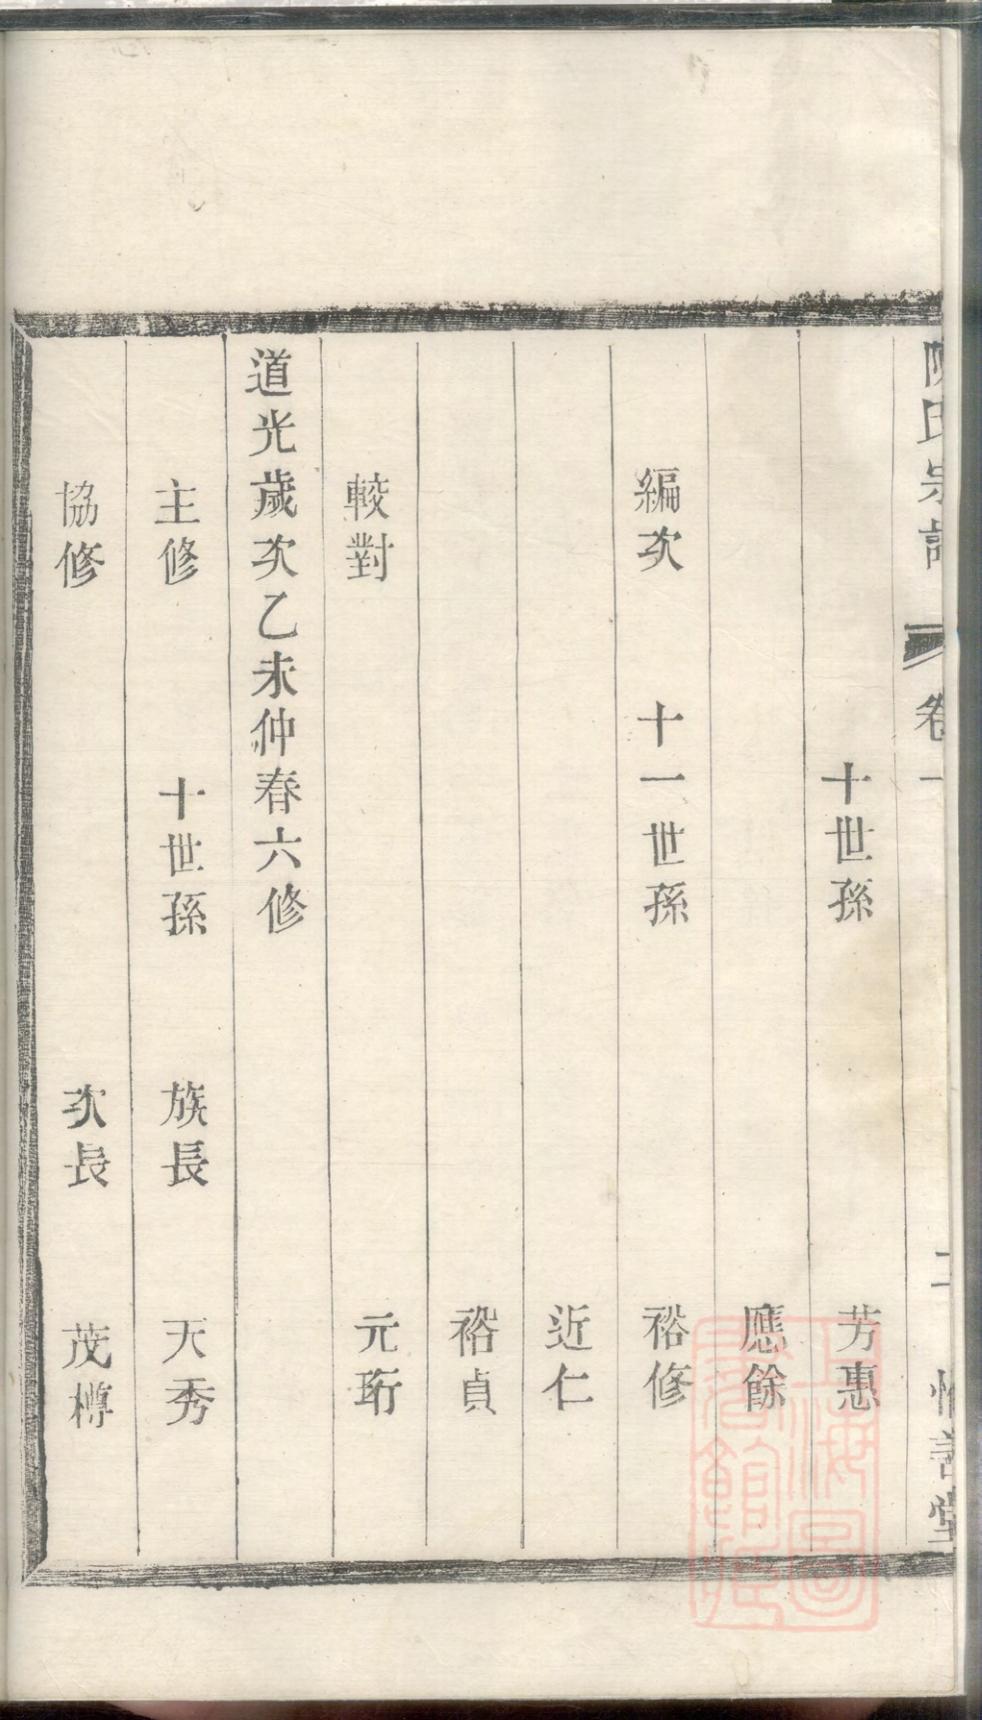 陳氏宗譜 卷一 二 惇善堂
十世孫 芳惠
應餘
編次 十一世孫 裕修
近仁
裕貞
較對 元珩
道光歲次乙未仲春六修
主修 十世孫 族長 天秀
協修 次長 茂樽
上海圖書館藏